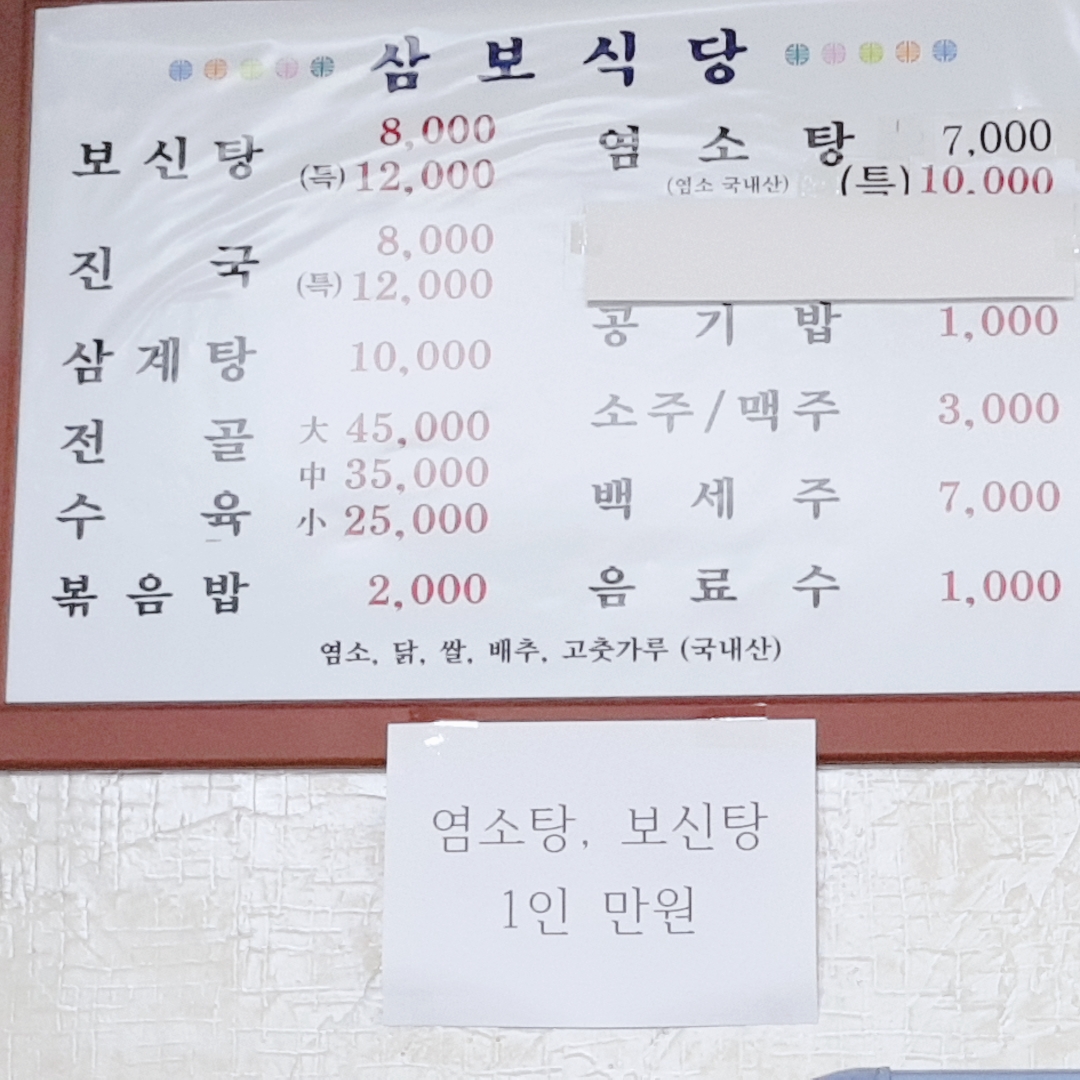 삼보식당
보신탕 8,000
(특) 12,000
진국 8,000
(특) 12,000
삼계탕 10,000
전골 大 45,000
中 35,000
수육 小 25,000
볶음밥 2,000
염소탕 7,000
(염소 국내산) (특) 10,000
공기밥 1,000
소주/맥주 3,000
백세주 7,000
음료수 1,000
염소, 닭, 쌀, 배추, 고춧가루 (국내산)
염소탕, 보신탕
1인 만원